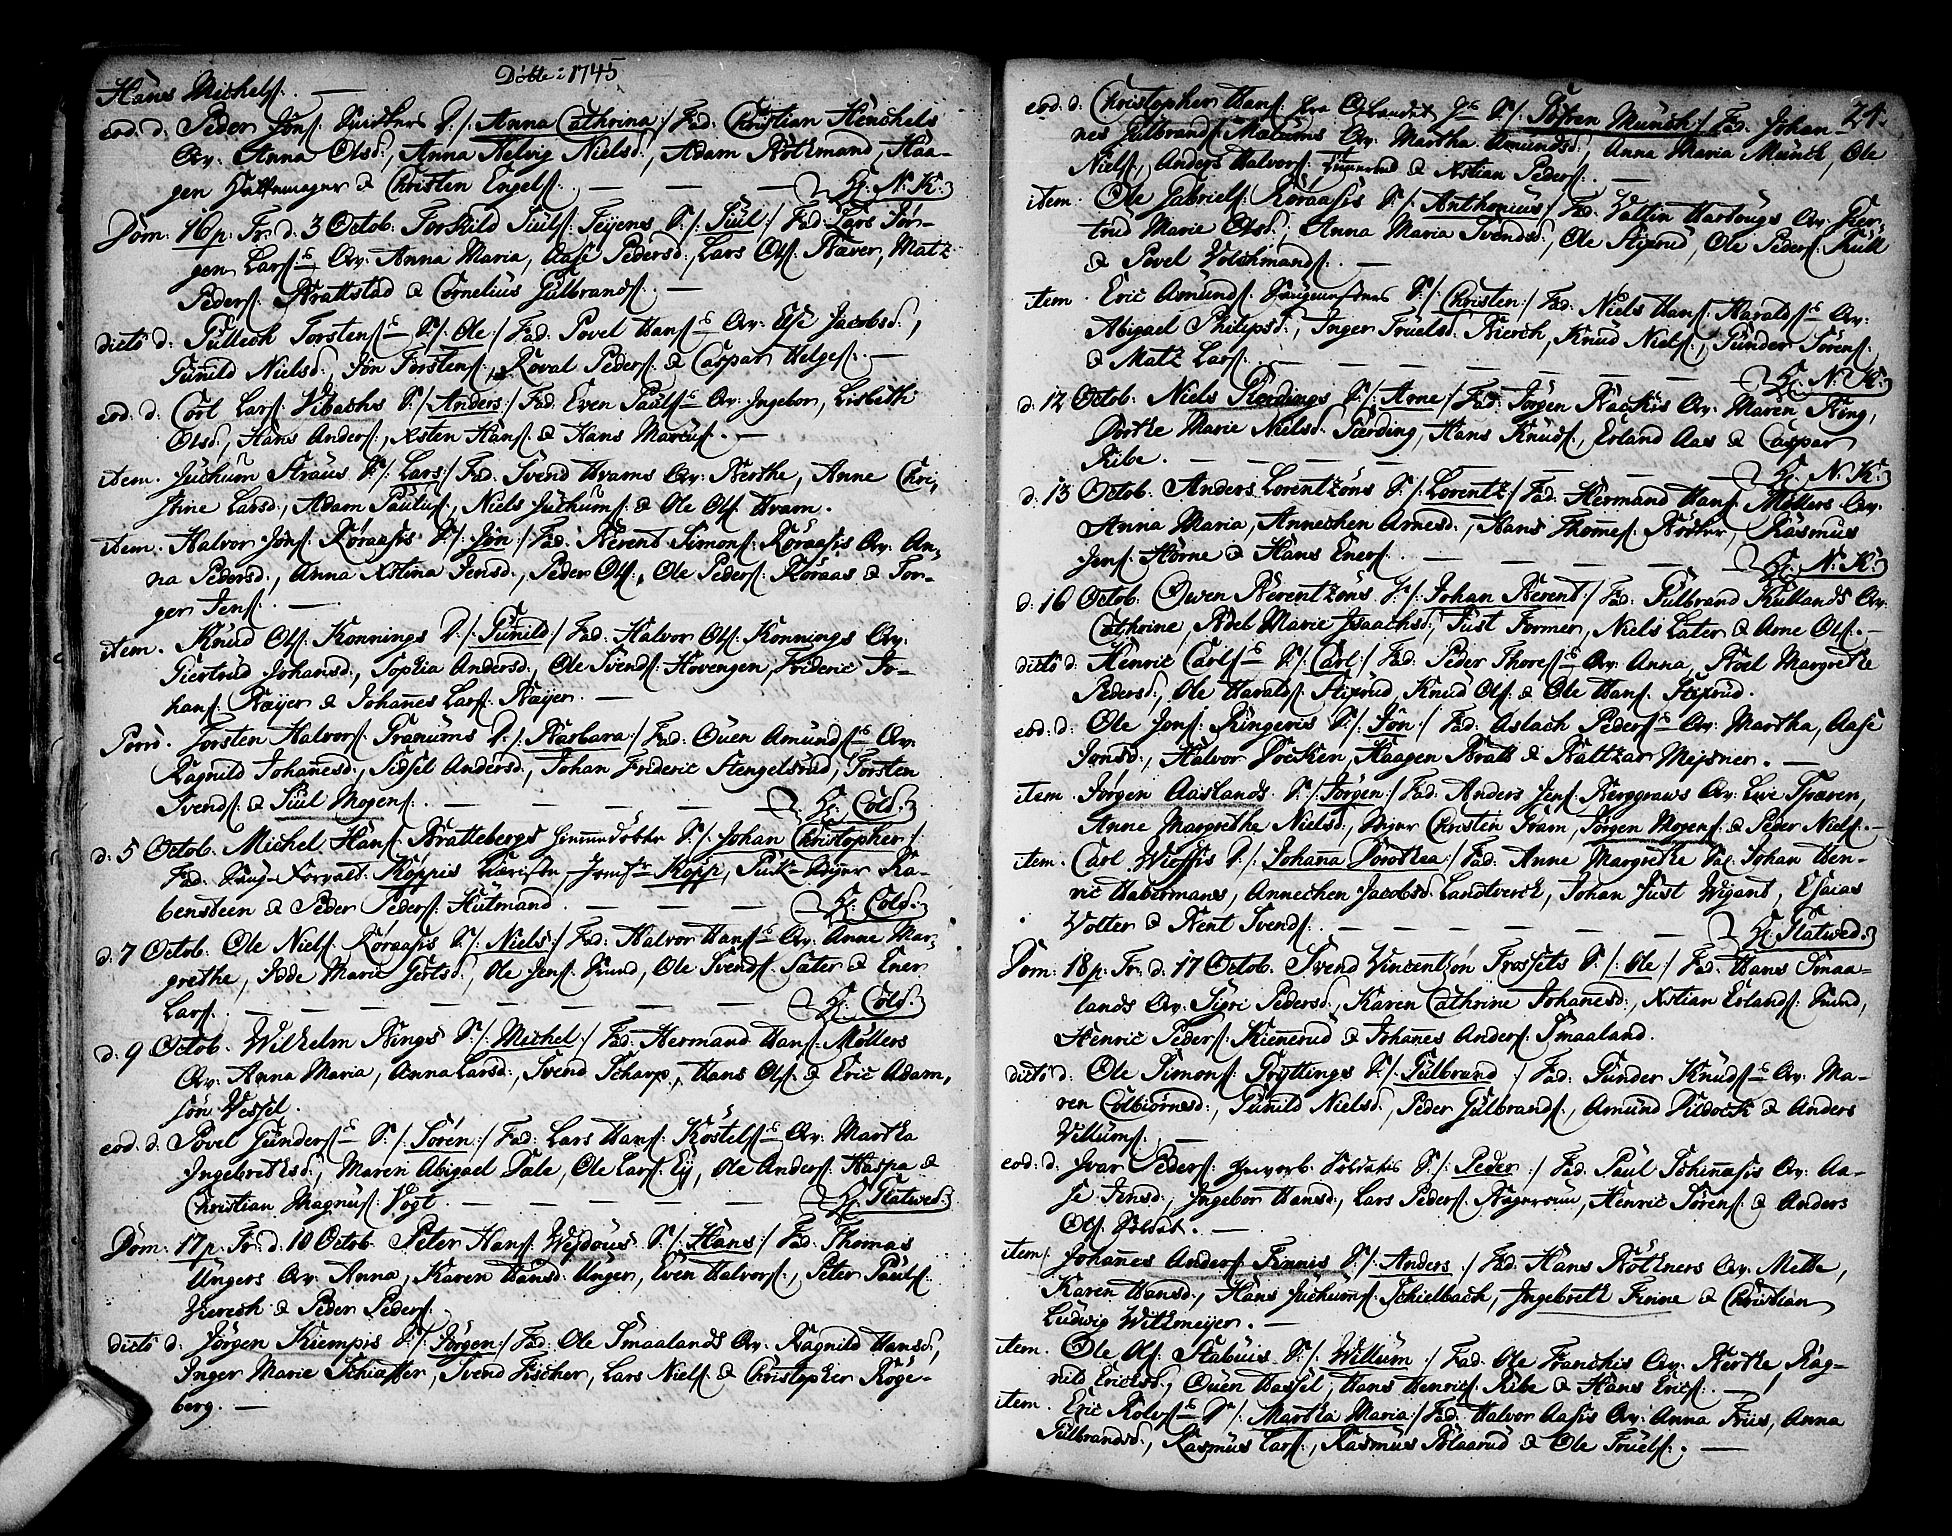 Döbte: 1745
Hans Michels. —
eod. d. Peder Jons. D./: Anna Cathrina :/ Fad. Christian Henchels
Qv: Anna Olsd., Anna Helvig Nielsd., Adam Röthmand, Haa-
gen Hattemager & Christen Engels. — — — H: N: K:
Dom. 16 p. Tr. d. 3 Octob. Torkild Siuls. Teyens S./: Siul :/ Fad. Lars Jör-
gen Lars. Qv: Anna Maria, Aase Pedersd., Lars Ols. Næver, Matz
Peders. Brattstad & Cornelius Gulbrands. —
dicto d. Tullech Torstens. S./: Ole :/ Fad. Povel Hans. Qv: Else Jacobsd.,
Gunild Nielsd., Jon Torstens., Roval Peders. & Caspar Helges. —
eod. d. Carl Lars. Vibachs S./: Anders :/ Fad. Even Pauls. Qv: Ingebor, Lisbeth
Olsd., Hans Anders., Xsten Hans. & Hans Marcus. —
item. Juchum Straus S./: Lars :/ Fad. Svend Hvams Qv: Berthe, Anne Chri-
stine Larsd., Adam Paulus., Niels Juchums. & Ole Ols. Hvam.
item. Halvor Jons. Kóraasis S./: Jon :/ Fad. Berent Simons. Kóraasis Qv: An-
na Pedersd., Anna Xstina Jensd., Peder Ols., Ole Peders. Kóraas & Tor-
ger Jens. —
item. Knud Ols. Konnings D./: Gunild :/ Fad. Halvor Ols. Konnings Qv:
Giertrud Johansd., Sophia Andersd., Ole Svends. Hovengen, Frideric Jo-
hans. Bæyer & Johanes Lars. Bæyer. —
Porrò. Torsten Halvors. Tranums D./: Barbara :/ Fad. Ouen Amunds. Qv:
Ragnild Johannesd., Sidsel Andersd., Johan Frideric Stengelsrud, Torsten
Svends. & Siul Mogens. — — — — H: Cold:
d. 5 Octob. Michel Hans. Brattebergs hiemmedöbte S./: Johan Christopher :/
Fad. Köppis Jomfr. Köpp, Ra-
bensteen & Peder Peders. Hutmand. — — — H: Cold:
d. 7 Octob. Ole Niels. Kóraasis S./: Niels :/ Fad. Halvor Hans. Qv: Anne Mar-
grethe, Idde Marie Gertsd., Ole Jens. Sund, Ole Svends. Sater & Ener
Lars. — — — — — — — H: Cold:
d. 9 Octob. Wilhelm Bings S./: Michel :/ Fad. Hermand Hans. Möllers
Qv: Anna Maria, Anna Larsd., Svend Scharp, Hans Ols. & Eric Adam,
sön Vessel.
eod. d. Povel Gunders. S./: Sören :/ Fad. Lars Hans. Kóstels. Qv: Martha
Ingebrethsd., Maren Abigael Dale, Ole Lars. Ey, Ole Anders. Haspa &
Christian Magnus. Vogt. — — — — H: Flatwed:
Dom: 17 p. Tr. d. 10 Octob. Peter Hans. Wejdous S./: Hans :/ Fad. Thomas
Ungers Qv: Anna, Karen Hansd. Unger, Even Halvors., Peter Pauls.
Viereck & Peder Peders.
dicto d. Jörgen Kiempis S./: Jörgen :/ Fad. Ole Smaalands Qv: Ragnild Hansd.,
Inger Marie Schiaffer, Svend Fischer, Lars Niels. & Christopher Róge-
berg. —
24.
eod. d. Christopher Hans. S./: Tósten Münch :/ Fad. Johan-
nes Gulbrands. Mælums Qv: Martha Amundsd., Anna Maria Münch, Ole
Niels., Anders Halvors. & Xstian Peders. —
item. Ole Gabriels. Kóraasis S./: Anthonius :/ Fad. Valtin Hartvigs Qv: Gier-
trud Marie Olsd., Anna Maria Svendsd., Ole Stixrud, Ole Peders. Kull
& Povel Volchmands. —
item. Eric Amunds. S./: Christen :/ Fad. Niels Hans. Haralds. Qv:
Abigael Philipsd., Inger Truelsd. Bierch, Knud Niels., Gunder Sörens.
& Matz Lars. — — — — — — H: N: K:
d. 12 Octob. Niels Færdings S./: Arne :/ Fad. Jörgen Backis Qv: Maren Bing,
Dorthe Marie Nielsd. Færding, Hans Knuds., Erland Aas & Caspar
Ribe. — — — — — — H: N: K:
d. 13 Octob. Anders Lorentzöns S./: Lorentz :/ Fad. Hermand Hans. Möllers Qv:
Anna Maria, Annechen Arnesd., Hans Thomes. Becker, Rasmus
Jens. Hörne & Hans Eners. — — — — H: N: K:
d. 16 Octob. Owen Berentzöns S./: Johan Berent :/ Fad. Gulbrand Kullands Qv:
Cathrine, Abel Marie Isaachsd., Just Former, Niels Sater & Arne Ols. —
dicto d. Henric Carls. S./: Carl :/ Fad. Peder Thores. Qv: Anna, Boel Margrethe
Pedersd., Ole Haralds. Stixrud, Knud Ols. & Ole Hans. Stixrud.
eod. d. Ole Jons. Ringeris S./: Jon :/ Fad. Aslach Peders. Qv: Martha, Aase
Jonsd., Halvor Docken, Haagen Bratt & Baltzar Mejsner. —
item. Jörgen Aaslands S./: Jörgen :/ Fad. Anders Jens. Berggraws Qv: Live Spæren,
Anne Margrethe Nielsd., Christen Fram, Jörgen Mogens. & Peder Niels. —
item. Carl Wioffis D./: Johana Dorothea :/ Fad. Anne Margrethe Sal. Johan Hen-
ric Habermans, Annechen Jacobsd. Landtverck, Johan Just Wigant, Esaias
Volter & Bent Svends. — — — — — H: Flatwed:
Dom: 18 p. Tr. d. 17 Octob. Svend Vincentzön Frossets S./: Ole :/ Fad. Hans Smaa-
lands Qv: Sigri Pedersd., Karen Cathrine Johanesd., Xstian Erlands. Sund,
Henric Peders. Kiennerud & Johanes Anders. Smaaland.
dicto d. Ole Simons. Gryttings S./: Gulbrand :/ Fad. Gunder Knuds. Qv: Ma-
ren Colbiornsd., Gunild Nielsd., Peder Gulbrands., Amund Puddock & Anders
Villums. —
eod. d. Ivar Peders. S./: Peder :/ Fad. Paul Johannasis Qv: Aa-
se Jensd., Ingebor Hansd., Lars Peders. Bagerouin, Henric Sörens. & Anders
Ols. Soldat. —
item. Johannes Anders. Finnes S./: Anders :/ Fad. Hans Böthners Qv: Mette,
Karen Hansd., Hans Juchums. Schielbach, Ingebreth Finne & Christian
Ludwig Withmeyer. —
item. Ole Ols. Stabuis S./: Willum :/ Fad. Ole Franchis Qv: Berthe, Rag-
nild Ericksd., Ouen Hassel, Hans Henrics. Ribe & Hans Erics. —
item. Eric Rolvs. D./: Martha Maria :/ Fad. Halvor Aasis Qv: Anna Friis, Anna
Gulbrandsd., Rasmus Lars., Rasmus Blaarud & Ole Truels. —